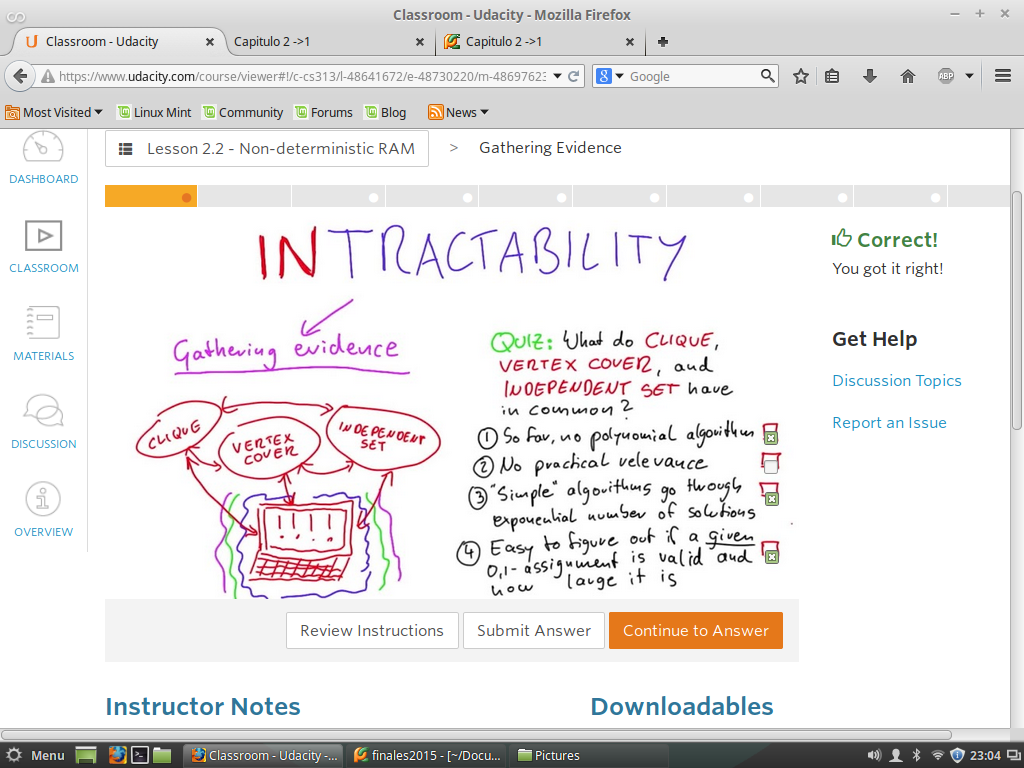 Classroom - Udacity - Mozilla Firefox
Classroom - Udacity
Capitulo 2 ->1
Capitulo 2 ->1
https://www.udacity.com/course/viewer#!/c-cs313/l-48641672/e-48730220/m-4869762
Google
ABP
Most Visited
Linux Mint
Community
Forums
Blog
News
DASHBOARD
CLASSROOM
MATERIALS
DISCUSSION
OVERVIEW
Lesson 2.2 - Non-deterministic RAM > Gathering Evidence
INTRACTABILITY
Gathering evidence
CLIQUE
VERTEX
COVER
INDEPENDENT
SET
! ! ! !
QUIZ: What do CLIQUE,
VERTEX COVER, and
INDEPENDENT SET have
in common?
① So far, no polynomial algorithm
② No practical relevance
③ "Simple" algorithms go through
exponential number of solutions
④ Easy to figure out if a given
0,1-assignment is valid and
how large it is
Correct!
You got it right!
Get Help
Discussion Topics
Report an Issue
Review Instructions
Submit Answer
Continue to Answer
Instructor Notes
Downloadables
Menu
Classroom - Udacity -...
finales2015 - [~/Docu...
Pictures
23:04